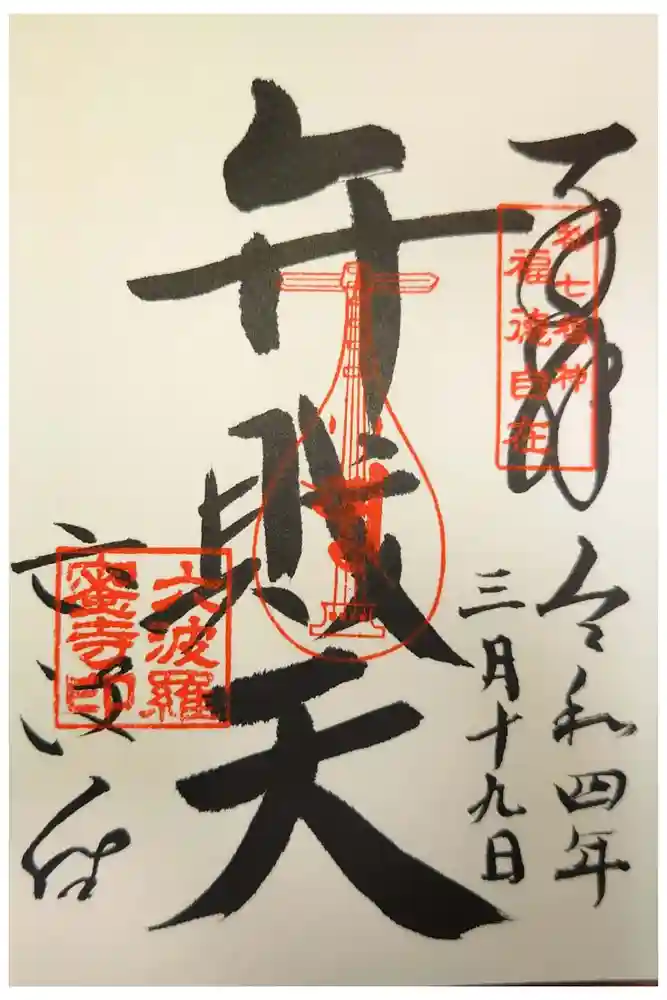 奉拝
都七福神
福徳自在
令和四年
三月十九日
弁財天
六波羅
蜜寺印
六波羅